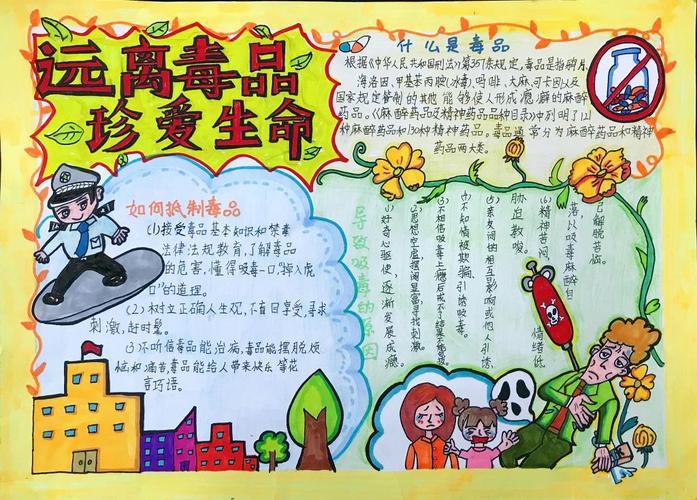 远离毒品
珍爱生命
什么是毒品
根据《中华人民共和国刑法》第357条规定,毒品是指鸦片、
海洛因、甲基苯丙胺(冰毒)、吗啡、大麻、可卡因以及
国家规定管制的其他能够使人形成瘾癖的麻醉
药品。《麻醉药品及精神药品品种目录》中列明了121
种麻醉药品和130种精神药品。毒品通常分为麻醉药品和精神
药品两大类。
如何抵制毒品
(1)接受毒品基本知识和禁毒
法律法规教育,了解毒品
的危害,懂得吸毒一口,掉入虎
口"的道理。
(2)树立正确人生观,不盲目享受,寻求
刺激,赶时髦。
(3)不听信毒品能治病,毒品能摆脱烦
恼和痛苦,毒品能给人带来快乐等花
言巧语。
导致吸毒的原因
(1)好奇心驱使,逐渐发展成瘾。
(2)思想空虚摆阔显富寻找刺激。
(3)不相信吸毒上瘾后戒不了结果
(4)不知情被欺骗引诱吸毒。
(5)亲友间的相互影响或他人引诱、
胁迫教唆。
(6)精神苦闷、情绪低
落以吸毒麻醉自
己解脱苦恼。